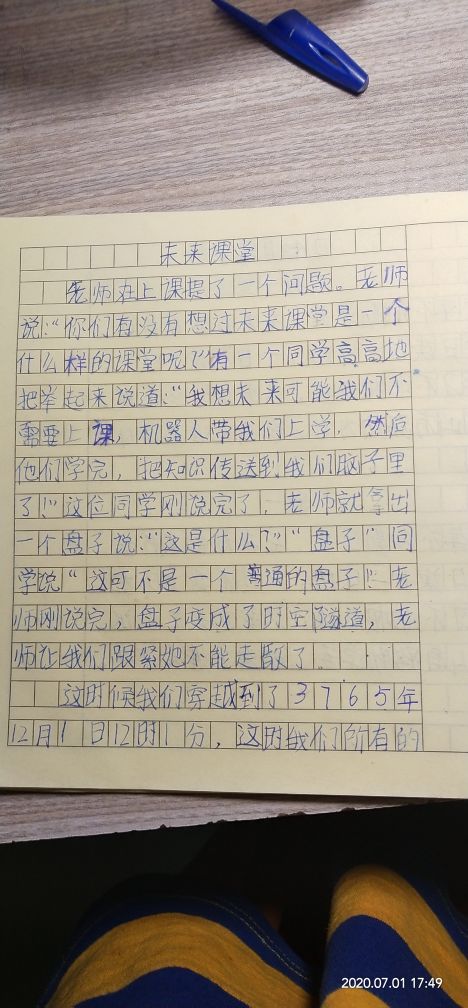 未来课堂
老师在上课提了一个问题。老师
说:“你们有没有想过未来课堂是一个
什么样的课堂呢?”有一个同学高高地
把举起来说道:“我想未来可能我们不
需要上课,机器人带我们上学,然后
他们学完,把知识传送到我们脑子里
了!”这位同学刚说完了,老师就拿出
一个盘子说:“这是什么?”“盘子”同
学说“这可不是一个普通的盘子!”老
师刚说完,盘子变成了时空隧道,老
师让我们跟紧她不能走散了
这时候我们穿越到了3765年
12月1日12时1分,这时我们所有的
2020.07.01 17:49